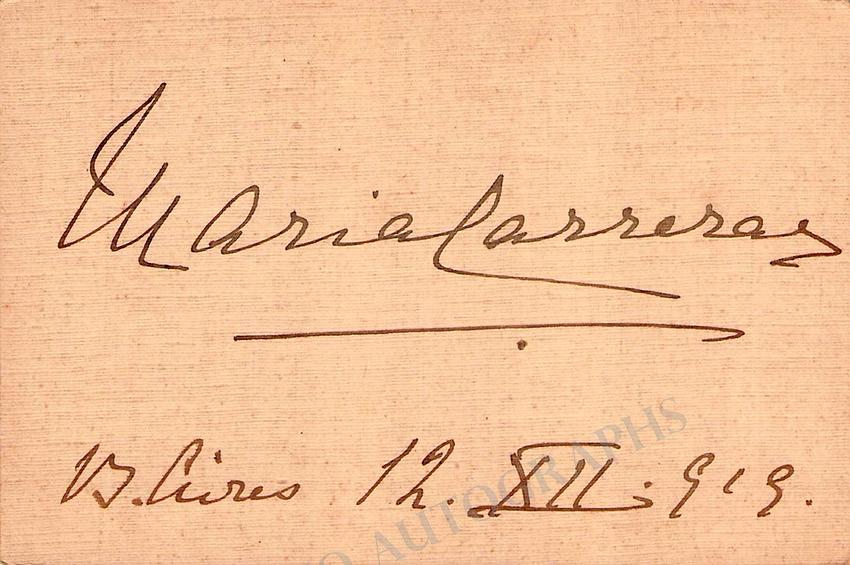 Maria Carreras
B. Aires 12. XII. 919.
O AUTOGRAPHS